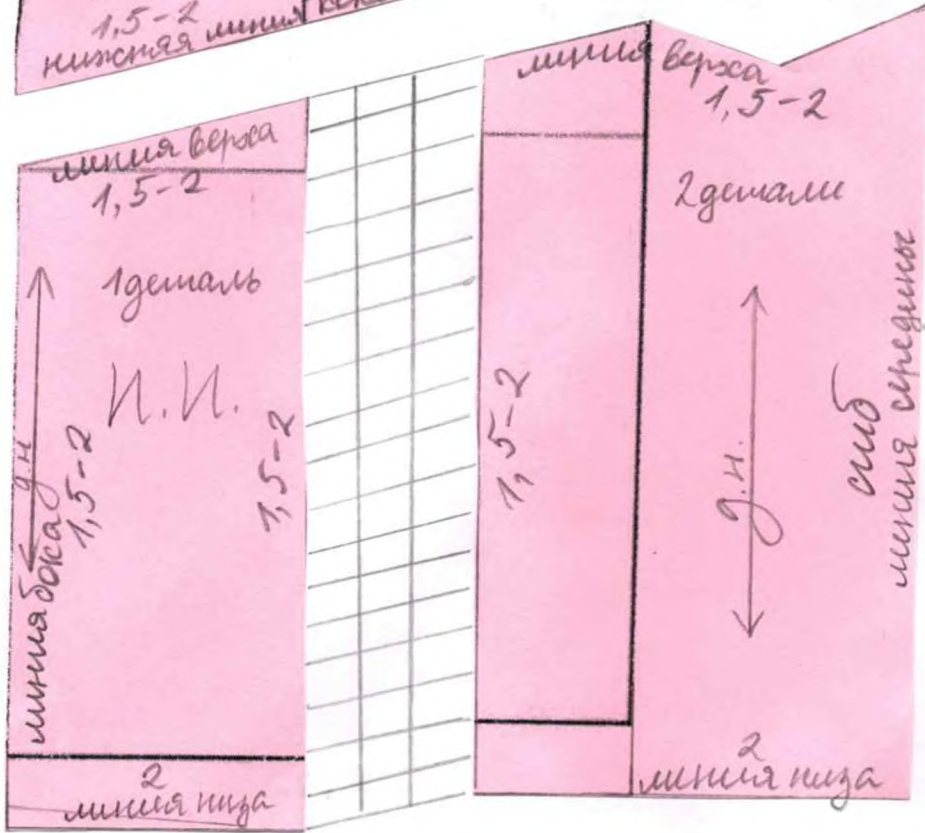 1,5-2
нижняя линия
линия верха
1,5-2
1 деталь
И.И.
д.н
линия бока
1,5-2
1,5-2
2
линия низа
линия верха
1,5-2
2 детали
1,5-2
д.н.
сгиб
линия середины
2
линия низа